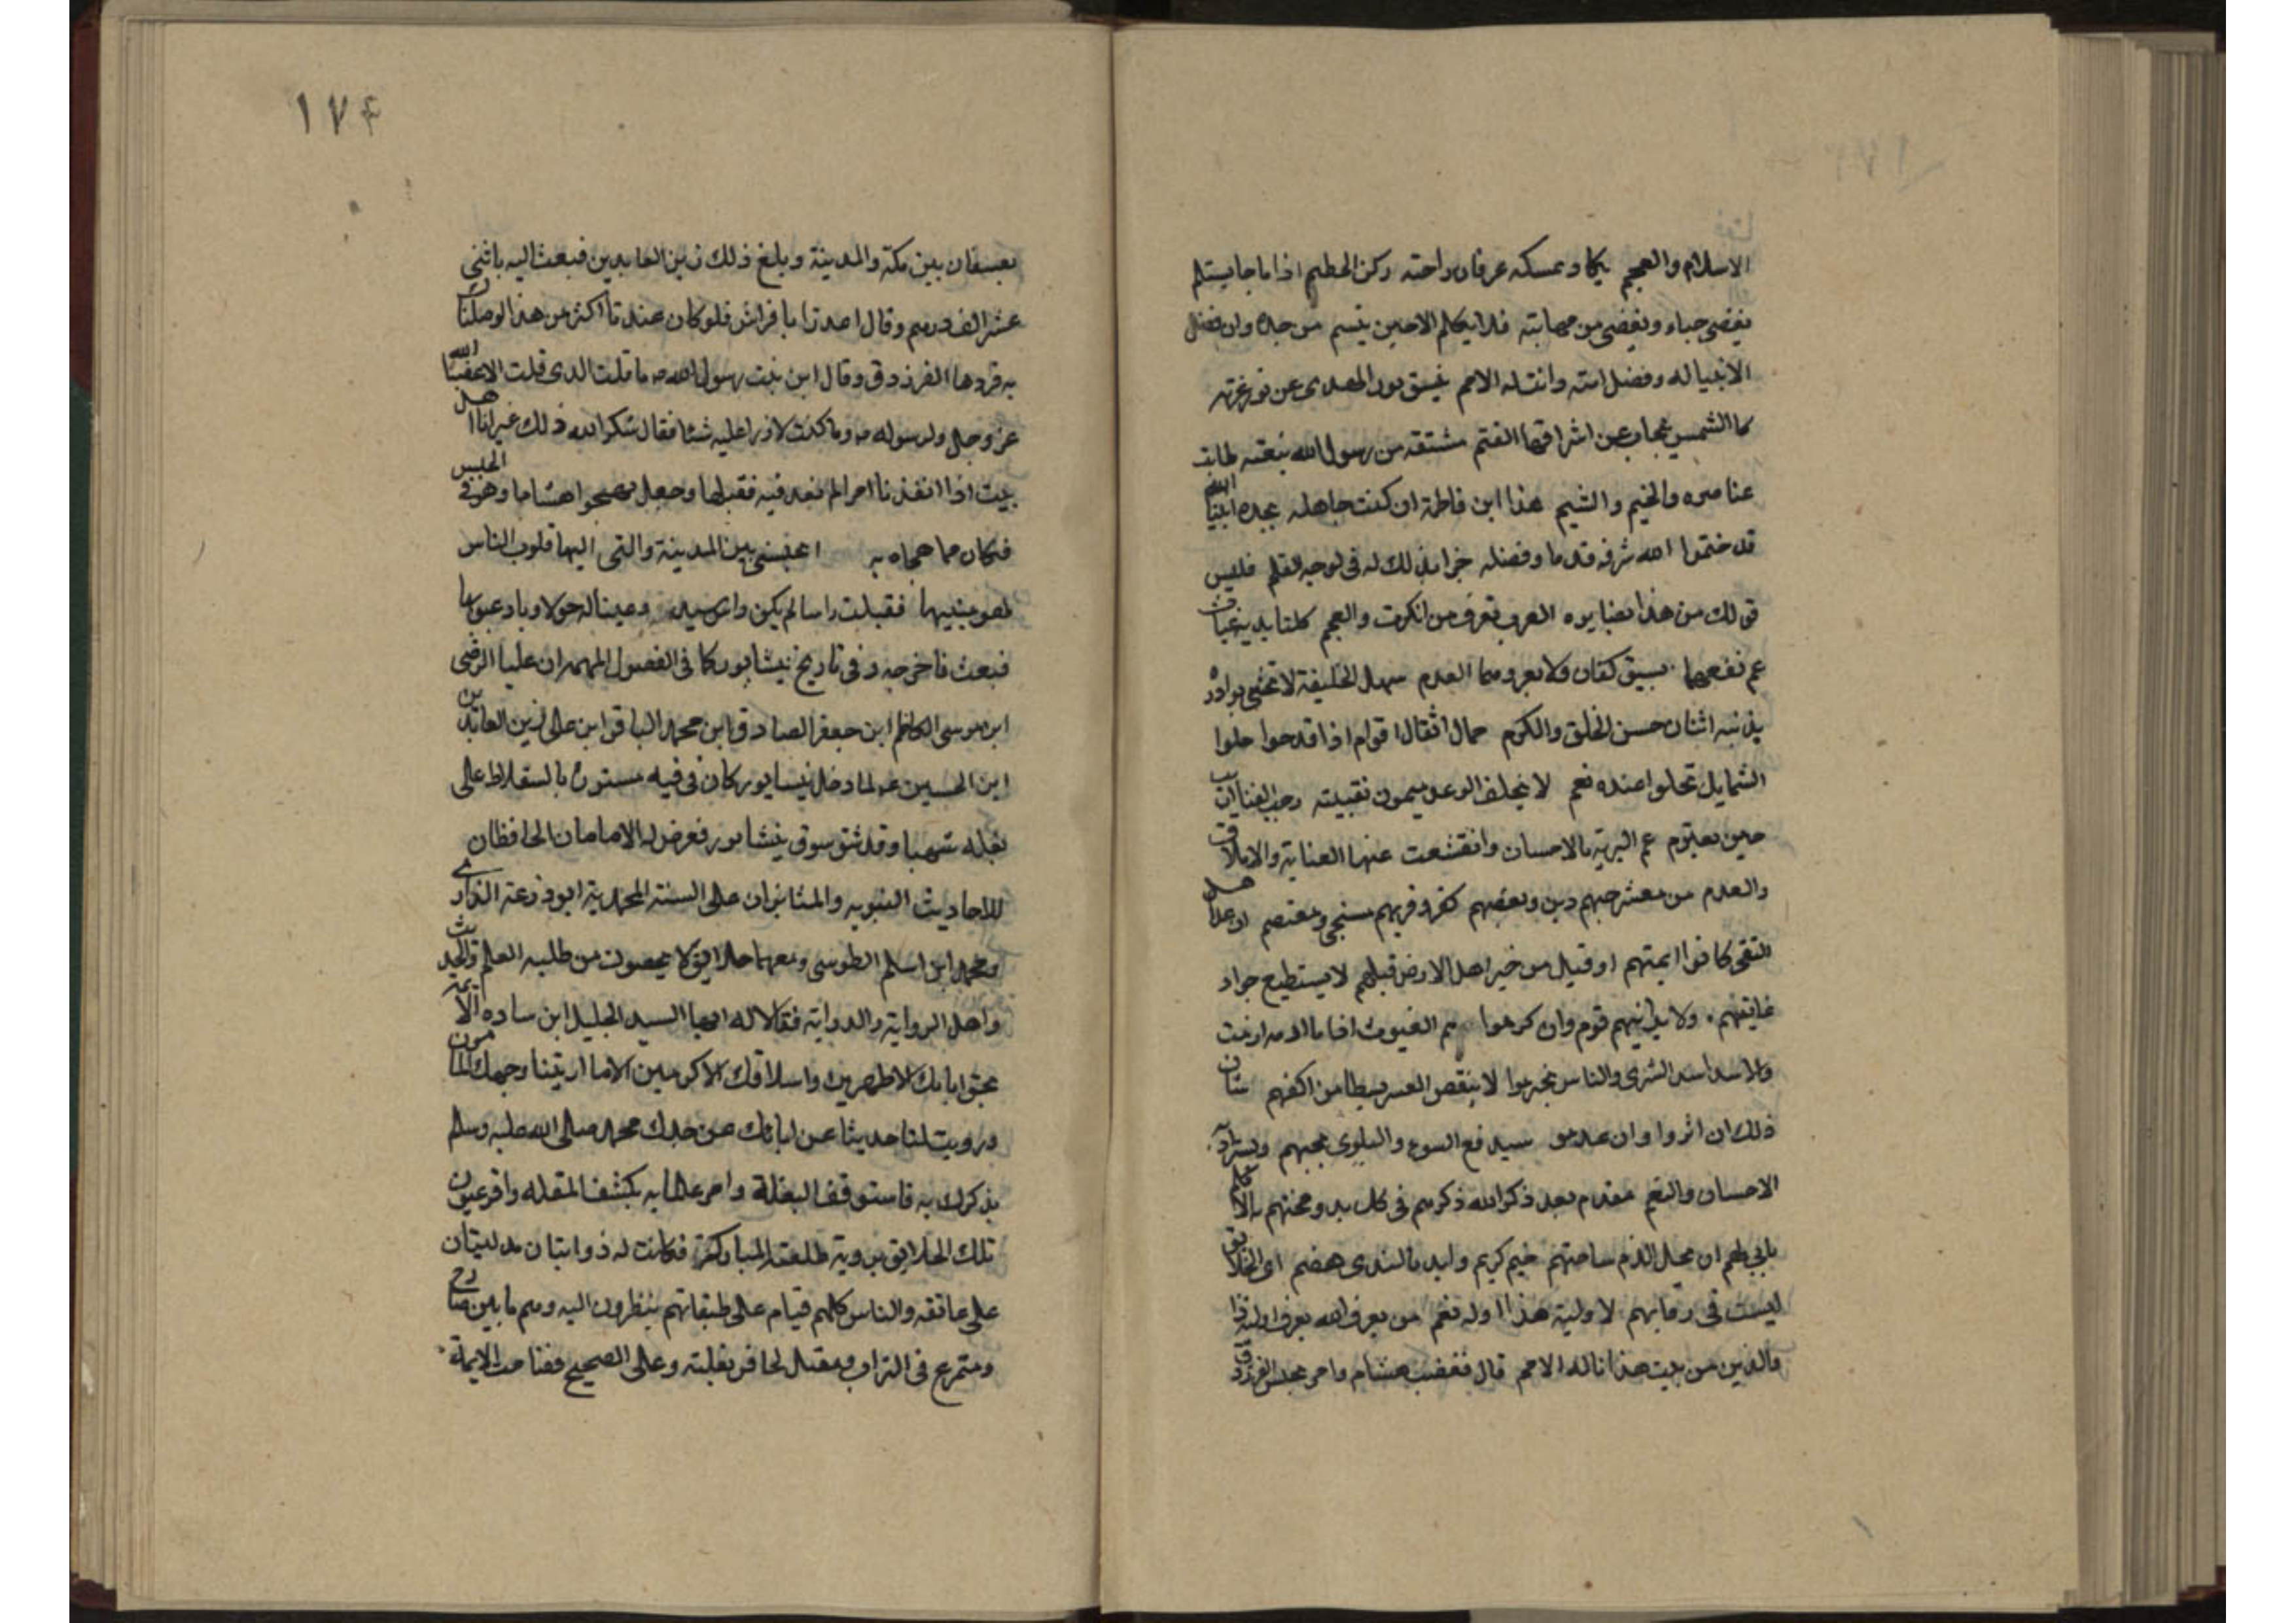 الاسلام والعجم يكاد يمسكه عرفان راحته ركن الحطيم اذا ما جا يستلم
يغضي حياء ويغضى من مهابته فلا يكلم الا حين يبتسم من جده دان فضل
الانبيا له وفضل امته دانت له الامم ينشق نور الهدى عن نور غرته
كالشمس ينجاب عن اشراقها القتم مشتقه من رسول الله نبعته طابت
عناصره والخيم والشيم هذا ابن فاطمة ان كنت جاهله بجده انبيا الله
قد ختموا الله شرفه قدما وفضله جرا بذلك له في لوحه القلم فليس
قولك من هذا بضايره العرب تعرف من انكرت والعجم كلتا يديه غياث
عم نفعهما يستوكفان ولا يعروهما العدم سهل الخليقة لا تخشى بوادره
يزينه اثنان حسن الخلق والكرم حمال اثقال اقوام اذا قدحوا حلوا
الشمايل تحلوا عنده نعم لا يخلف الوعد ميمون نقيبته رحب الفنا اريب
حين يعتزم عم البرية بالاحسان وانقشعت عنها العناية والاملاق
والعدم من معشر حبهم دين وبغضهم كفر وقربهم منجى ومعتصم ان عد اهل
التقى كانوا ايمتهم او قيل من خير اهل الارض قيل هم لا يستطيع جواد
غايتهم ولا يدانيهم قوم وان كرموا هم الغيوث اذا ما ازمه ازمت
والاسد اسد الشرى والناس محتدم لا ينقص العسر بسطا من اكفهم سيان
ذلك ان اثروا وان عدموا سيدفع السوء والبلوى بحبهم ويستزاد به
الاحسان والنعم مقدم بعد ذكر الله ذكرهم في كل بدو ومختتم به الكلم
يابى لهم ان يحل الذم ساحتهم خيم كريم وايد بالندى هضم اى الخلائق
ليست في رقابهم لاولية هذا او له نعم من يعرف الله يعرف اولية ذا
والدين من بيت هذا ناله الامم قال فغضب هشام وامر بحبس الفرزدق
١٧٤
بعسفان بين مكة والمدينة وبلغ ذلك زين العابدين فبعث اليه باثني
عشر الف درهم وقال اعذرنا يا ابا فراس فلو كان عندنا اكثر من هذا لوصلناك
به فردها الفرزدق وقال ابن بنت رسول الله ما قلت الذى قلت الا غضبا لله
عز وجل ولرسوله وما كنت لازرا عليه شئا فقال شكر الله ذلك غير انا اهل
بيت اذا انفذنا امرا لم نعد فيه فقبلها وجعل يهجوا هشاما وهو في الحبس
فكان مما هجاه به اتحبسني بين المدينة والتي اليها قلوب الناس
يهوى منيبها فقبلت راسا لم يكن راس سيد وعينا له حولا وباد عيوبها
فبعث فاخرجه وفى تاريخ نيشابور كما في الفصول المهمه ان عليا الرضى
ابن موسى الكاظم ابن جعفر الصادق ابن محمد الباقر ابن على زين العابدين
ابن الحسين لما دخل نيسابور كان في قبه مستوره بالسقلاط على
بغله شهبا وقد شق سوق نيشابور فعرض له الامامان الحافظان
للاحاديث النبويه والمثابران على السنة المحمدية ابو زرعة الرازي
ومحمد ابن اسلم الطوسى ومعهما خلائق لا يحصون من طلبه العلم والحديث
واهل الرواية والدراية فقالا له ايها السيد الجليل ابن ساده الايمة
بحق ابايك الاطهرين واسلافك الاكرمين الا ما اريتنا وجهك الميمون
ورويت لنا حديثا عن ابائك عن جدك محمد صلى الله عليه وسلم
نذكرك به فاستوقف البغلة وامر غلمانه بكشف المظله واقر عيون
تلك الخلايق برؤية طلعته المباركة فكانت له ذوابتان مدليتان
على عاتقه والناس كلهم قيام على طبقاتهم ينظرون اليه وهم ما بين صارخ
ومتمرغ في التراب ومقبل لحافر بغلته وعلى الضجيج فصاحت الايمة